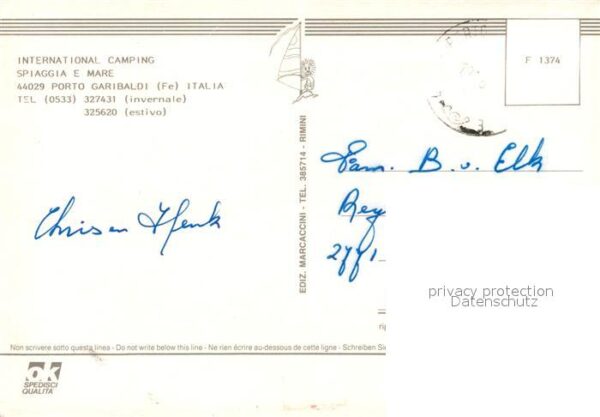 INTERNATIONAL CAMPING
SPIAGGIA E MARE
44029 PORTO GARIBALDI (Fe) ITALIA
TEL (0533) 327431 (invernale)
325620 (estivo)
Chris en Henk
EDIZ. MARCACCINI - TEL. 385714 - RIMINI
F 1374
Fam. B. v. Elk
Rey
2771
privacy protection
Datenschutz
rip
Non scrivere sotto questa linea - Do not write below this line - Ne rien écrire au-dessous de cette ligne - Schreiben Sie
ok
SPEDISCI
QUALITÀ